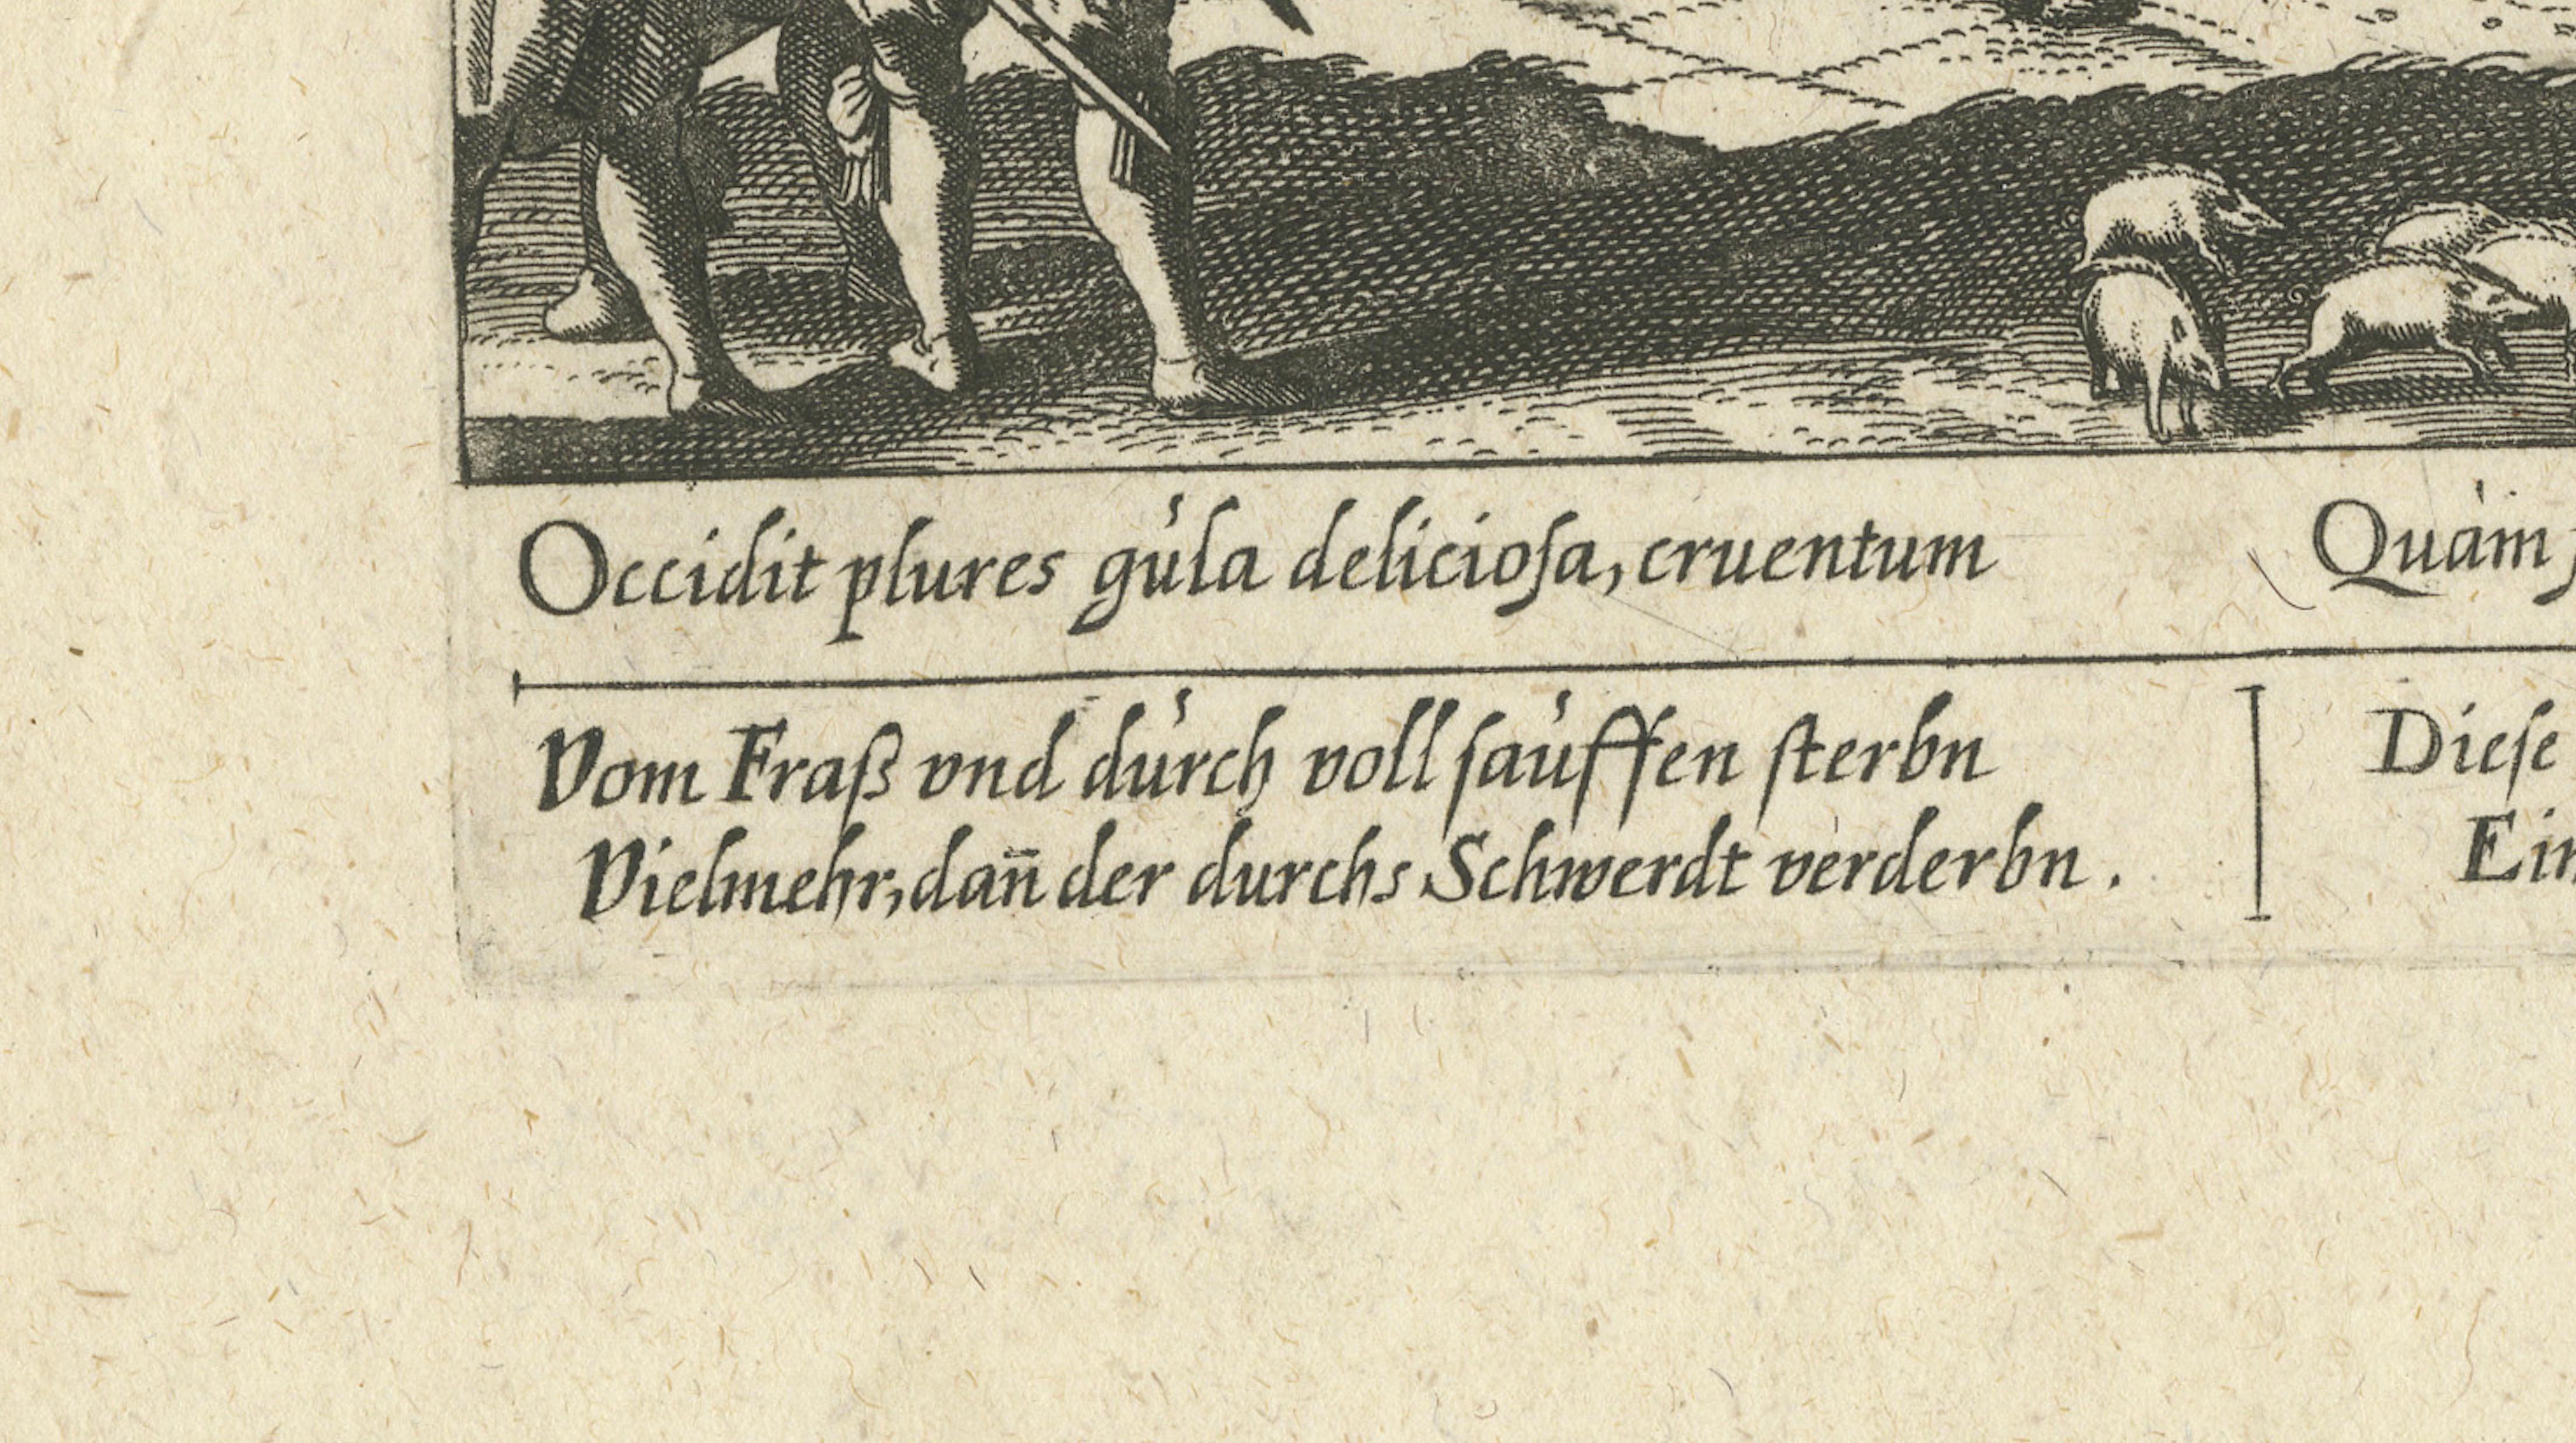 Occidit plures gula delicioſa, cruentum Quàm
Vom Fraß vnd durch voll ſauffen ſterbn
Vielmehr, dañ der durchs Schwerdt verderbn.
Dieſe